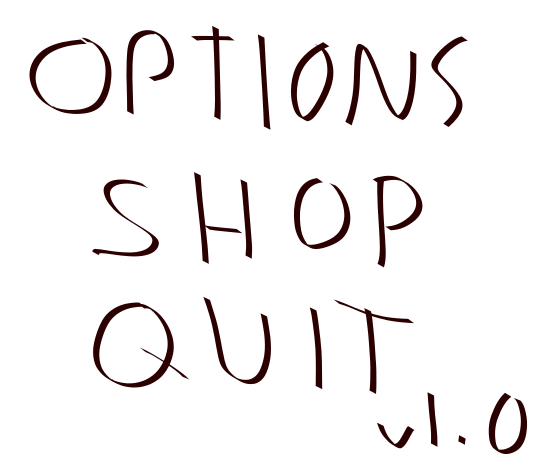 OPTIONS
SHOP
QUIT
v1.0